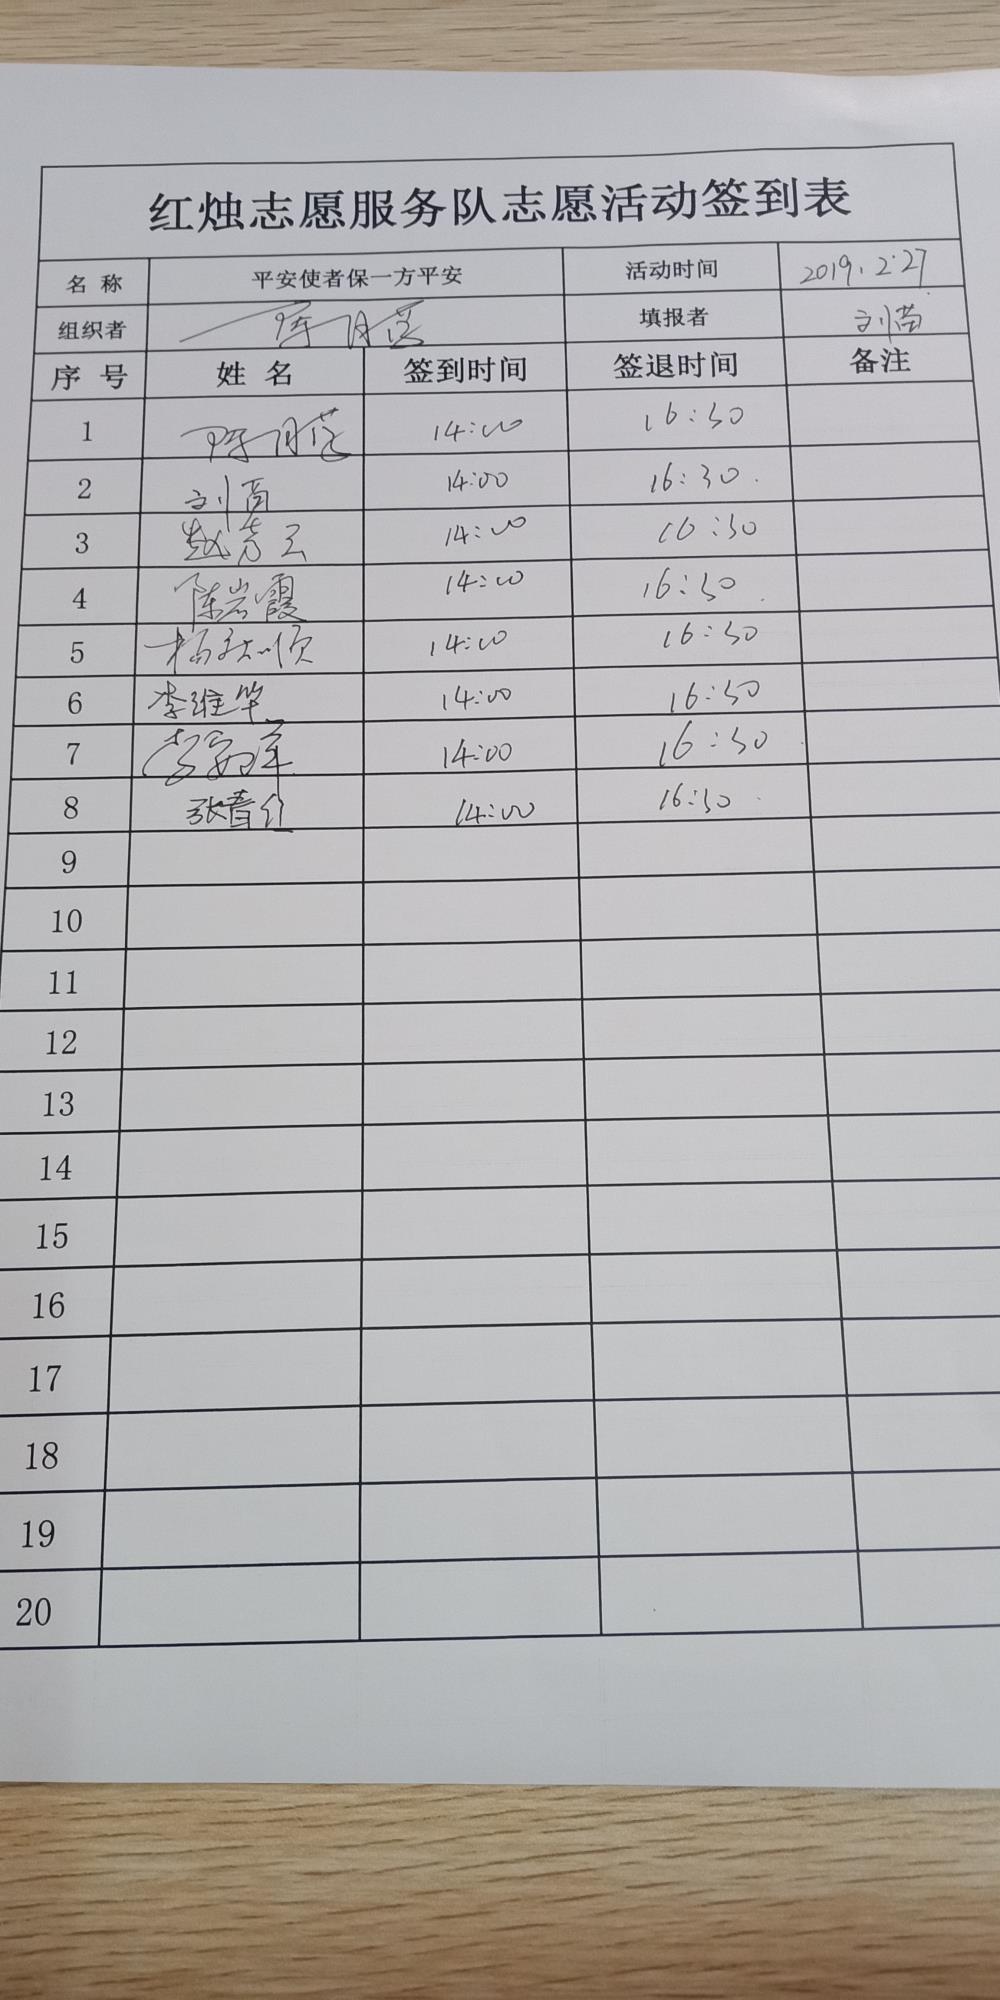 红烛志愿服务队志愿活动签到表
名 称 平安使者保一方平安 活动时间 2019.2.27
组织者 陈月莲 填报者 刘苗
序 号 姓 名 签到时间 签退时间 备注
1 陈月莲 14:00 16:30
2 刘苗 14:00 16:30
3 赵秀云 14:00 16:30
4 陈岩霞 14:00 16:30
5 14:00 16:30
6 李维华 14:00 16:30
7 14:00 16:30
8 14:00 16:30
9
10
11
12
13
14
15
16
17
18
19
20